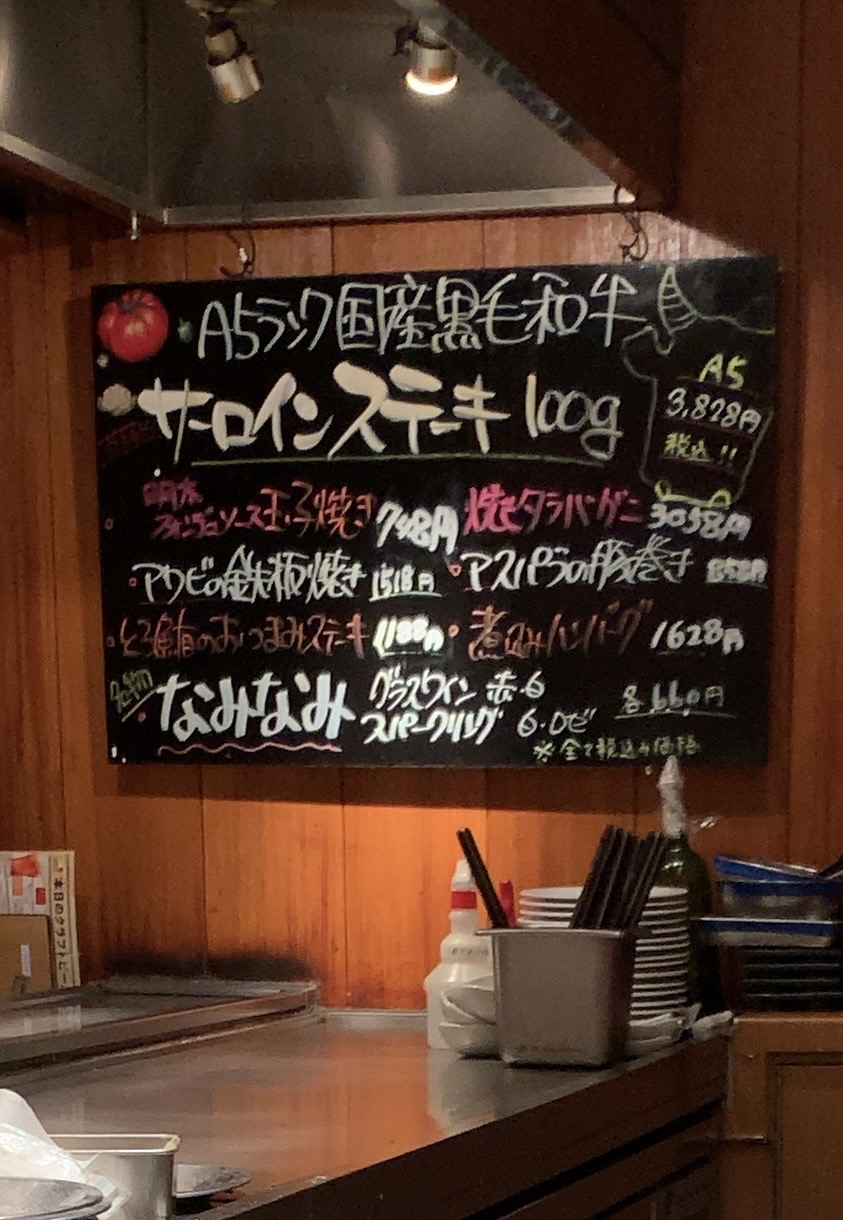 A5ランク国産黒毛和牛
サーロインステーキ 100g
A5
3,828円
税込!!
明太
フォンデュソース玉子焼き 748円
焼きタラバガニ 3058円
アワビの鉄板焼き 1518円
アスパラの豚巻き 858円
とろ鮪のおつまみステーキ 1188円
煮込みハンバーグ 1628円
名物
なみなみ
グラスワイン 赤・白
スパークリング 白・ロゼ
各660円
※全て税込み価格
本日のクラフトビー